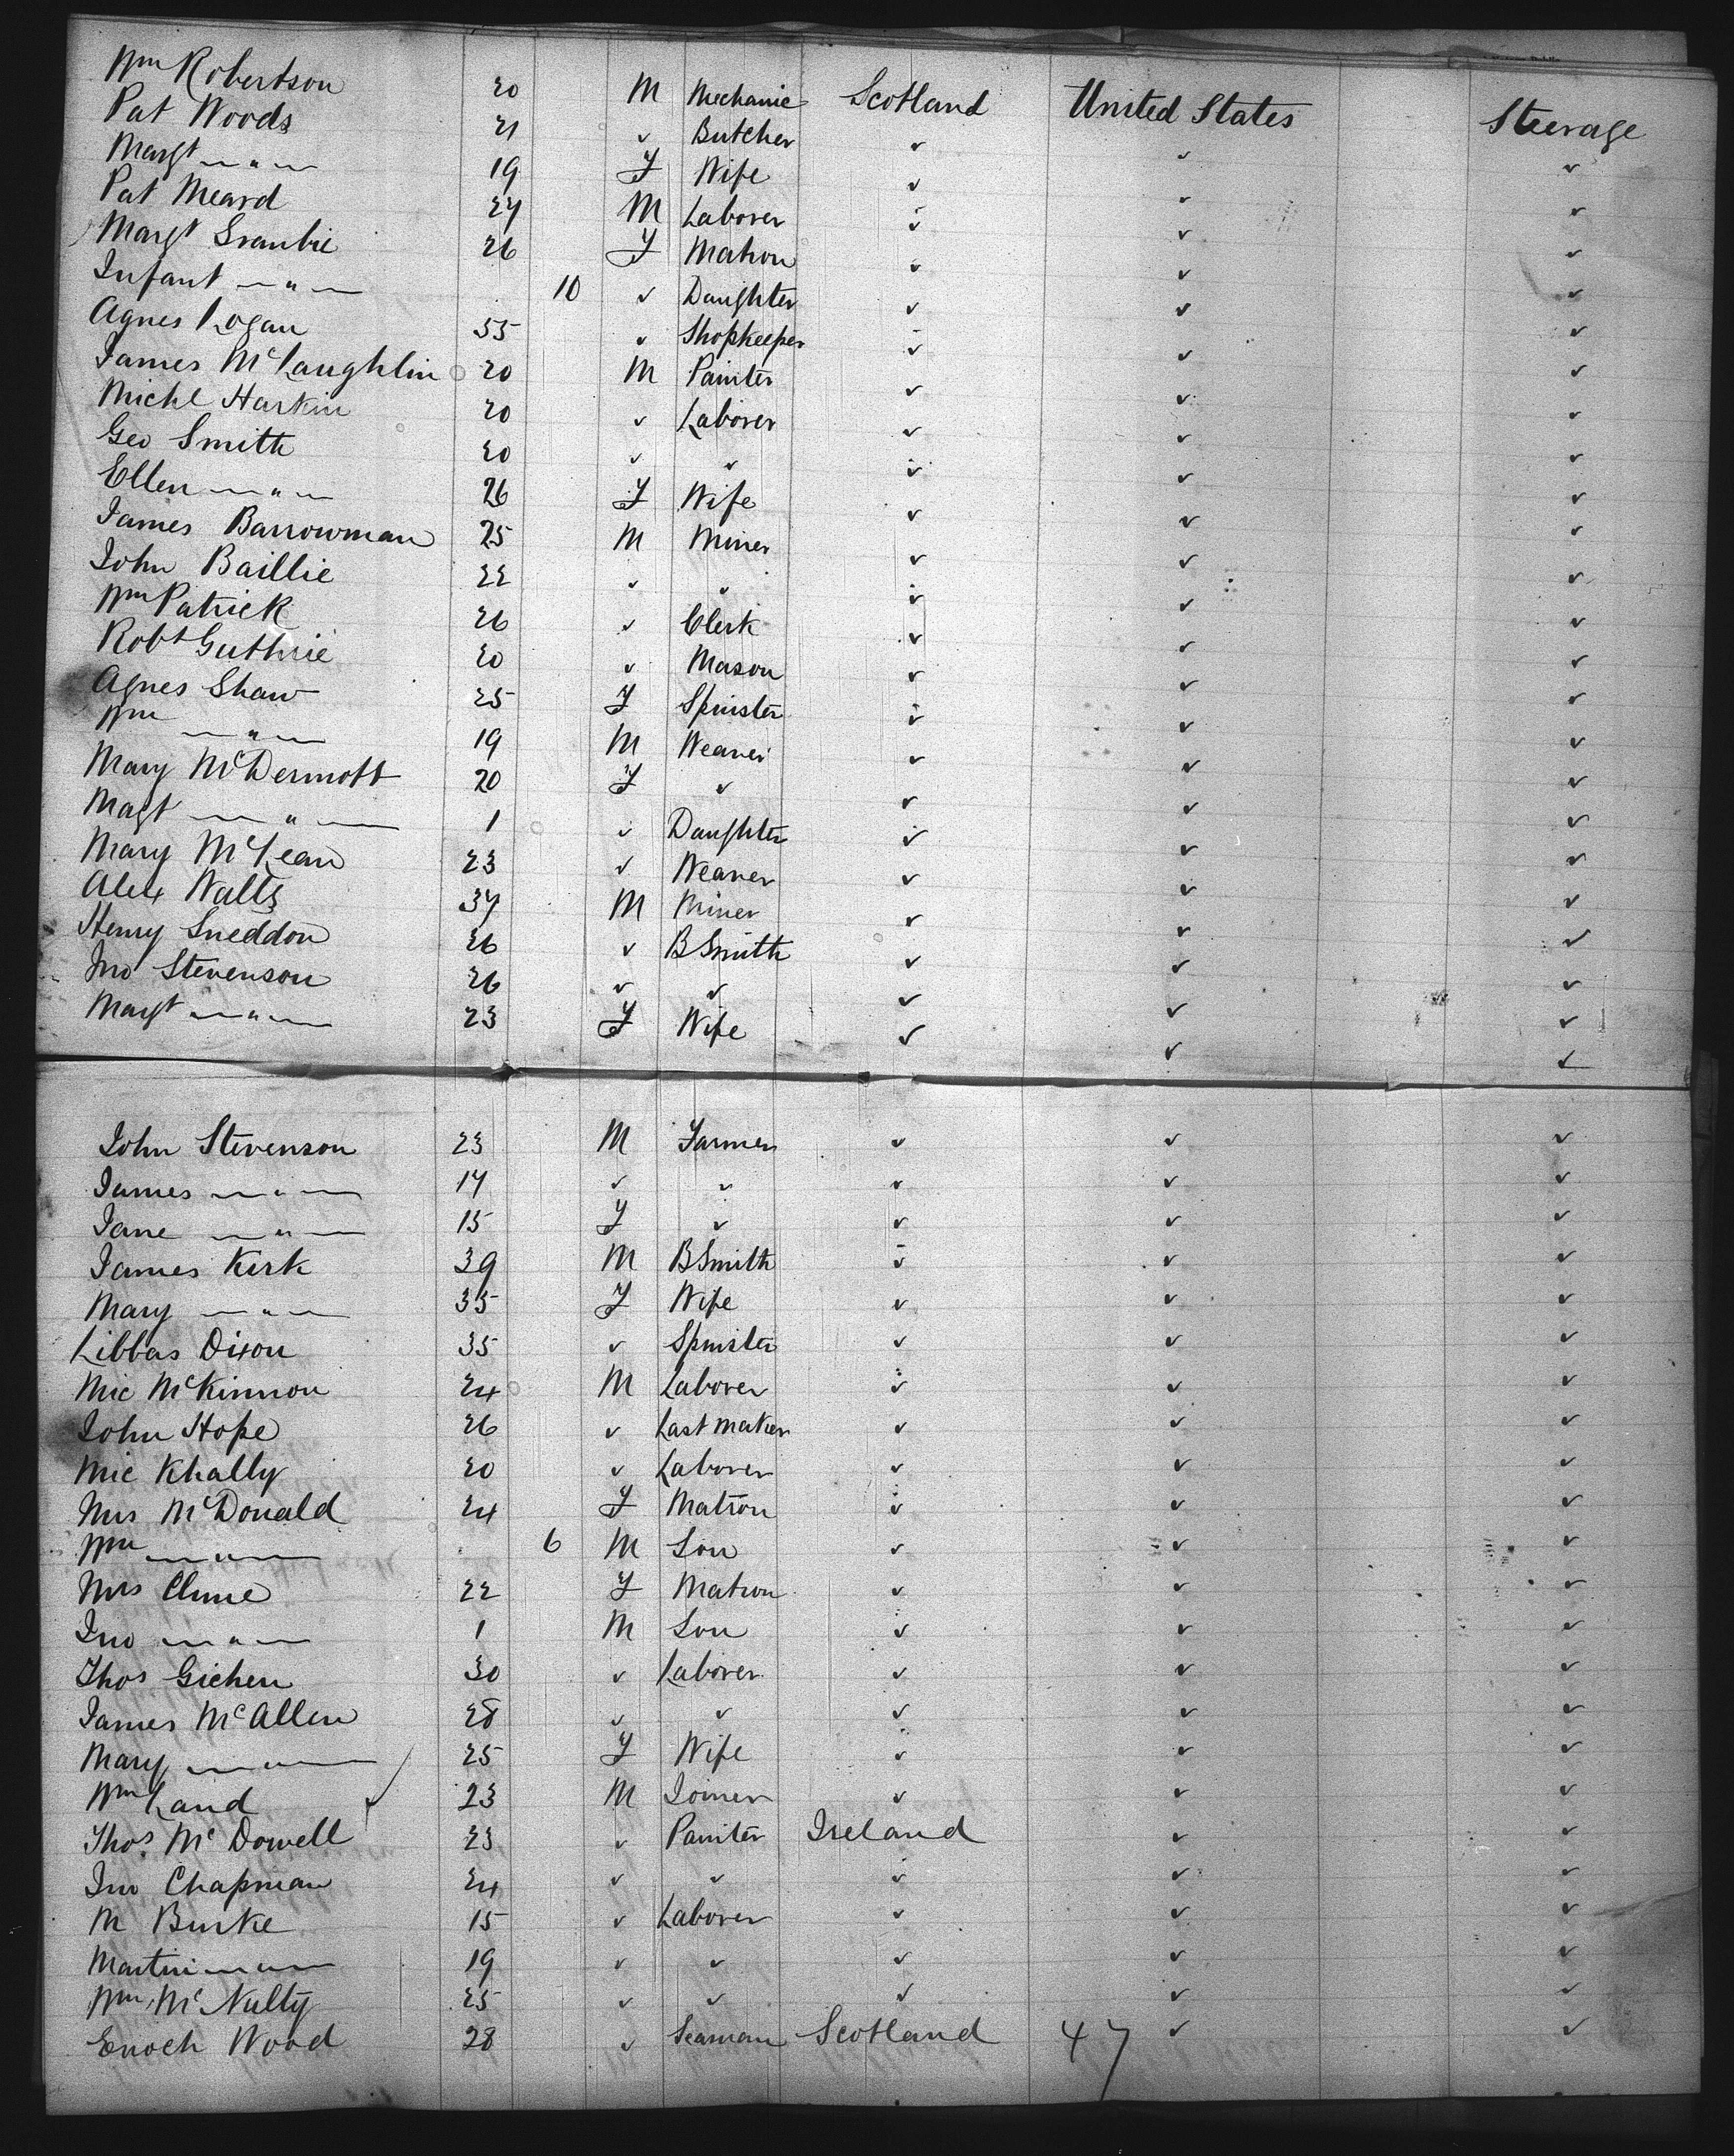 Wm Robertson 20 M Mechanic Scotland United States Steerage
Pat Woods 21 ✓ Butcher ✓ ✓ ✓
Margt — " — 19 F Wife ✓ ✓ ✓
Pat Meard 24 M Laborer ✓ ✓ ✓
Margt 26 F Matron ✓ ✓ ✓
Infant — " — 10 ✓ Daughter ✓ ✓ ✓
Agnes Logan 55 ✓ Shopkeeper ✓ ✓ ✓
James McLaughlin 20 M Painter ✓ ✓ ✓
Michl Harkin 20 ✓ Laborer ✓ ✓ ✓
Geo Smith 20 ✓ ✓ ✓ ✓ ✓
Ellen — " — 26 F Wife ✓ ✓ ✓
James Barrowman 25 M Miner ✓ ✓ ✓
John Baillie 22 ✓ ✓ ✓ ✓ ✓
Wm Patrick 26 ✓ Clerk ✓ ✓ ✓
Robt Guthrie 20 ✓ Mason ✓ ✓ ✓
Agnes Shaw 25 F Spinster ✓ ✓ ✓
Wm — " — 19 M Weaver ✓ ✓ ✓
Mary McDermott 20 F ✓ ✓ ✓ ✓
Magt — " — 1 ✓ Daughter ✓ ✓ ✓
Mary McLean 23 ✓ Weaver ✓ ✓ ✓
Alex Watts 34 M Miner ✓ ✓ ✓
Henry Sneddon 26 ✓ BSmith ✓ ✓ ✓
Jno Stevenson 26 ✓ ✓ ✓ ✓ ✓
Margt — " — 23 F Wife ✓ ✓ ✓
John Stevenson 23 M Farmer ✓ ✓ ✓
James — " — 17 ✓ ✓ ✓ ✓ ✓
Jane — " — 15 F ✓ ✓ ✓ ✓
James Kirk 39 M BSmith ✓ ✓ ✓
Mary — " — 35 F Wife ✓ ✓ ✓
Libbas Dixon 35 ✓ Spinster ✓ ✓ ✓
Mic McKinnon 24 M Laborer ✓ ✓ ✓
John Hope 26 ✓ Last maker ✓ ✓ ✓
Mic Khally 20 ✓ Laborer ✓ ✓ ✓
Mrs McDonald 24 F Matron ✓ ✓ ✓
Wm — " — 6 M Son ✓ ✓ ✓
Mrs Clune 22 F Matron ✓ ✓ ✓
Jno — " — 1 M Son ✓ ✓ ✓
Thos Gichen 30 ✓ Laborer ✓ ✓ ✓
James McAllen 28 ✓ ✓ ✓ ✓ ✓
Mary — " — 25 F Wife ✓ ✓ ✓
Wm Land 23 M Joiner ✓ ✓ ✓
Thos. McDowell 23 ✓ Painter Ireland ✓ ✓
Jno Chapman 24 ✓ ✓ ✓ ✓ ✓
M Burke 15 ✓ Laborer ✓ ✓ ✓
Martin — " — 19 ✓ ✓ ✓ ✓ ✓
Wm McNulty 25 ✓ ✓ ✓ ✓ ✓
Enoch Wood 28 ✓ Seaman Scotland 47 ✓ ✓